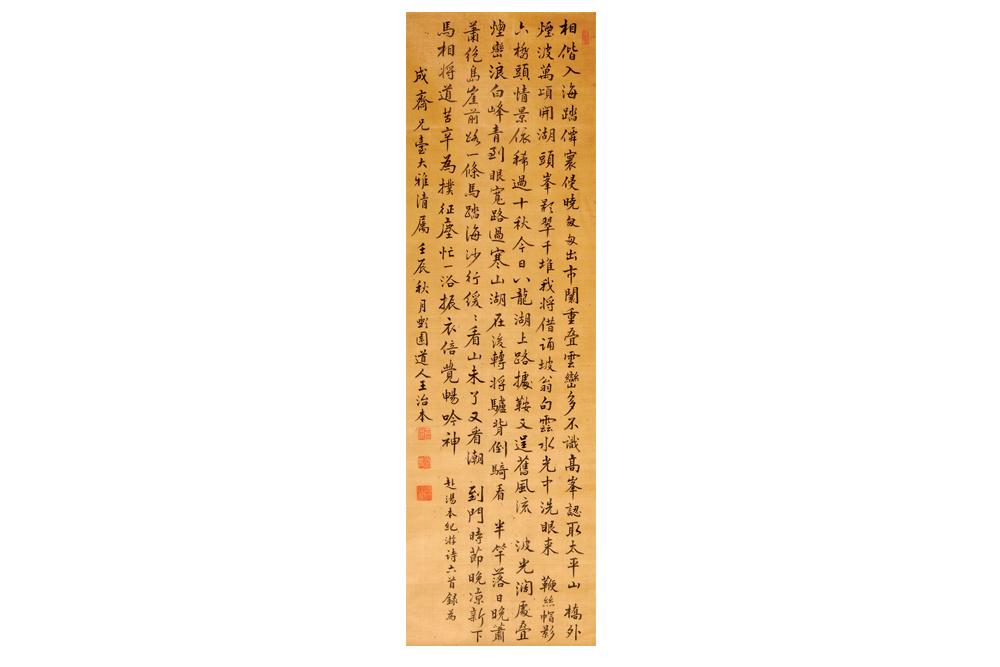 相偕入海踏僊寰侵曉匆匆出市闤重叠雲巒多不識高峯認取太平山 橋外
煙波萬頃開湖頭峯影翠千堆我將借誦坡翁句雲水光中洗眼來 鞭絲帽影
六橋頭情景依稀過十秋今日八龍湖上路據鞍又逞舊風流 波光濶處叠
煙巒浪白峰青到眼寬路過寒山湖在後轉將驢背倒騎看 半竿落日晚蕭
蕭絶島崖前路一條馬踏海沙行緩緩看山未了又看潮 到門時節晚凉新下
馬相將道苦辛為撲征塵忙一浴振衣倍覺暢吟神 赴湯本紀游詩六首錄為
成齋兄臺大雅清属 壬辰秋月 園道人王治本